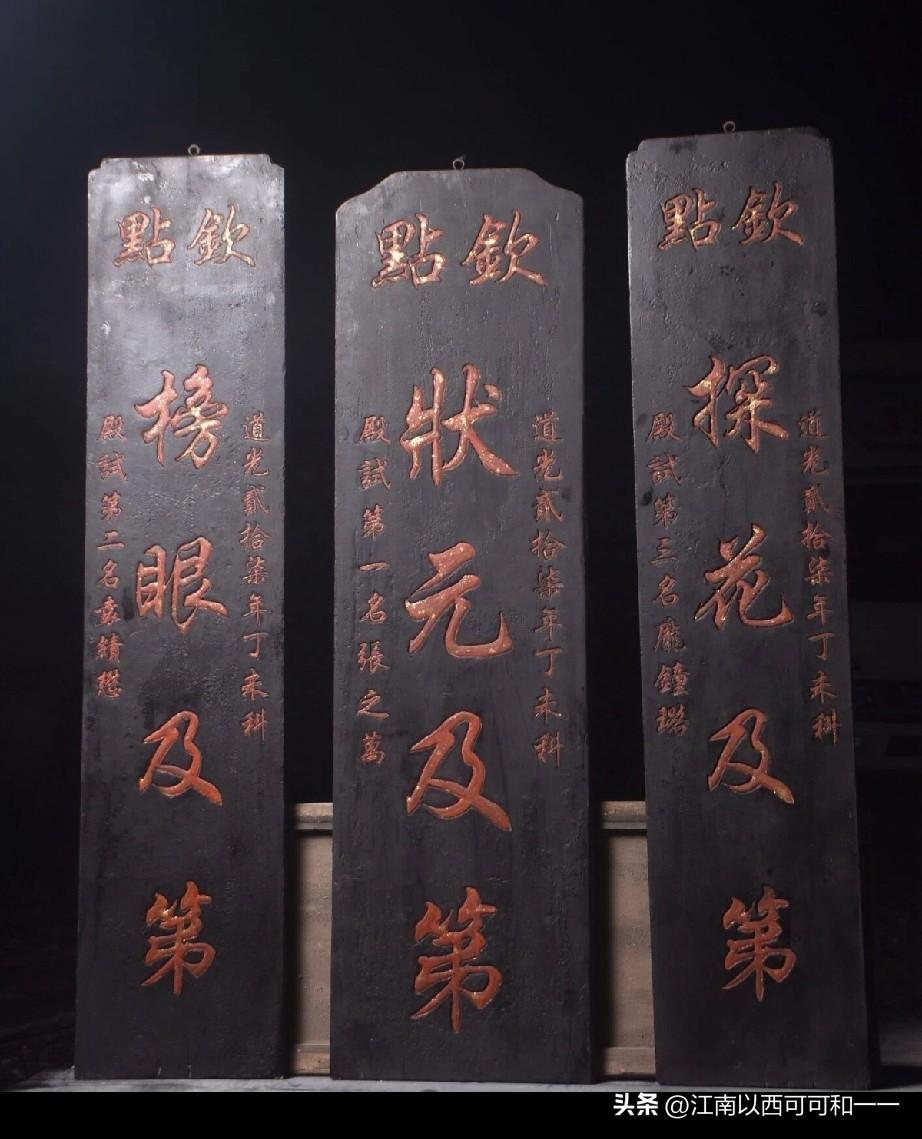 欽點
道光貳拾柒年丁未科
探花及第
殿試第三名龐鐘璐
欽點
道光貳拾柒年丁未科
狀元及第
殿試第一名張之萬
欽點
道光貳拾柒年丁未科
榜眼及第
殿試第二名袁績懋
头条 @江南以西可可和一一